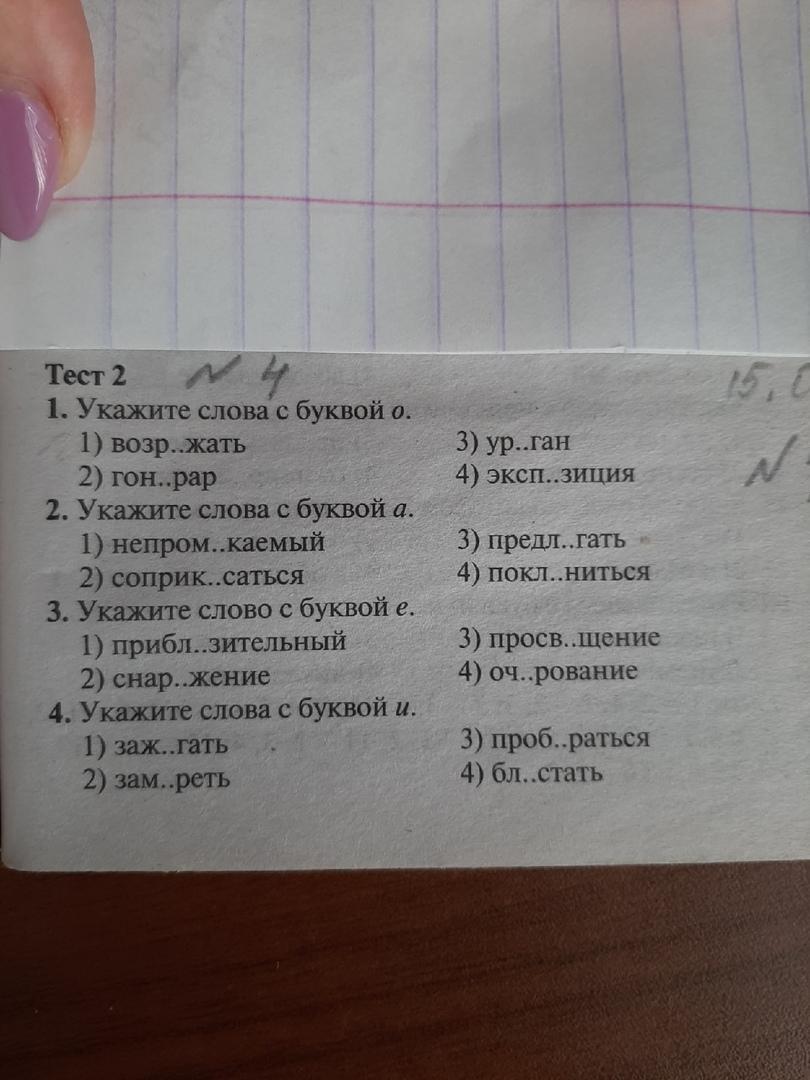 Тест 2 N 4
15.
1. Укажите слова с буквой о.
1) возр..жать 3) ур..ган
2) гон..рар 4) эксп..зиция
N
2. Укажите слова с буквой а.
1) непром..каемый 3) предл..гать
2) соприк..саться 4) покл..ниться
3. Укажите слово с буквой е.
1) прибл..зительный 3) просв..щение
2) снар..жение 4) оч..рование
4. Укажите слова с буквой и.
1) заж..гать 3) проб..раться
2) зам..реть 4) бл..стать